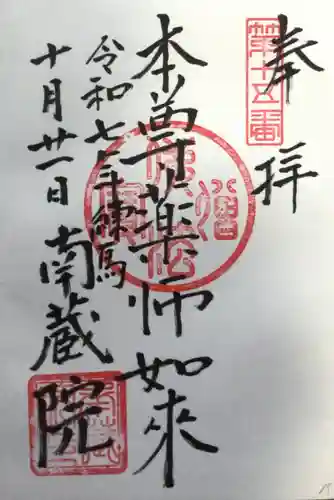 奉拝
第十五番
本尊薬師如来
令和七年練馬
十月廿一日南蔵院